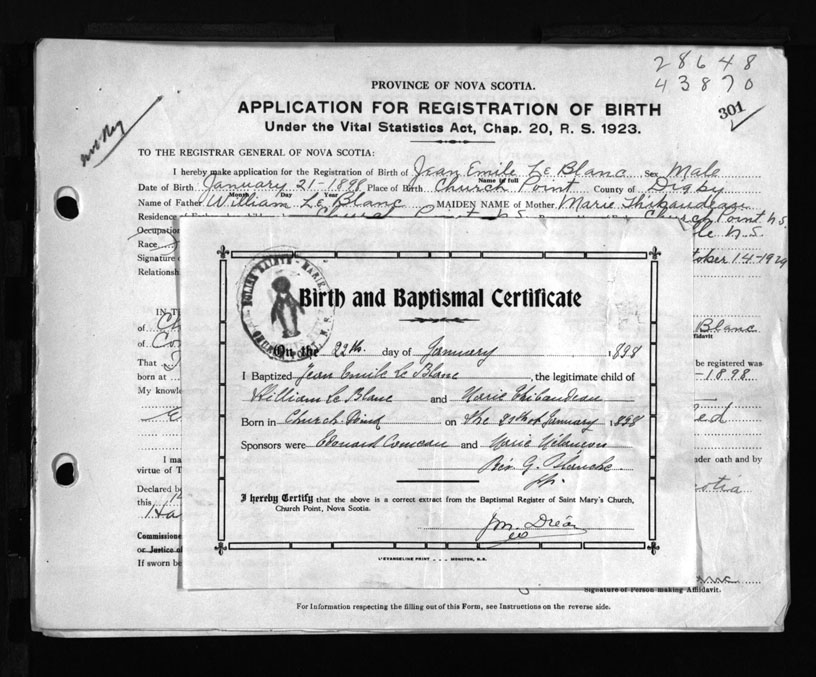 28648
43870
301
PROVINCE OF NOVA SCOTIA.
APPLICATION FOR REGISTRATION OF BIRTH
Under the Vital Statistics Act, Chap. 20, R. S. 1923.
TO THE REGISTRAR GENERAL OF NOVA SCOTIA:
I hereby make application for the Registration of Birth of Jean Emile Le Blanc Sex Male
Name in full
Date of Birth January 21-1898 Place of Birth Church Point County of Digby
Month Day Year
Name of Father William Le Blanc MAIDEN NAME of Mother Marie Thibaudeau
Residence of Church Point N.S. Church Point N.S.
Occupation N.S.
Race
Signature of October 14-1929
Relationship
IN T
of Blanc
of
That be registered was
born at -1898
My knowle
I ma under oath and by
virtue of T
Declared b
this
Commissione
or Justice of
If sworn be
Signature of Person making Affidavit.
For Information respecting the filling out of this Form, see Instructions on the reverse side.
Birth and Baptismal Certificate
On the 22th. day of January 1898
I Baptized Jean Emile Le Blanc, the legitimate child of
William Le Blanc and Marie Thibaudeau
Born in Church Point on the 21st of January 1898
Sponsors were Edouard Comeau and Marie Melanson
Rév. G. Blanche
I hereby Certify that the above is a correct extract from the Baptismal Register of Saint Mary's Church,
Church Point, Nova Scotia.
L'EVANGELINE PRINT - - - MONCTON, N.B.